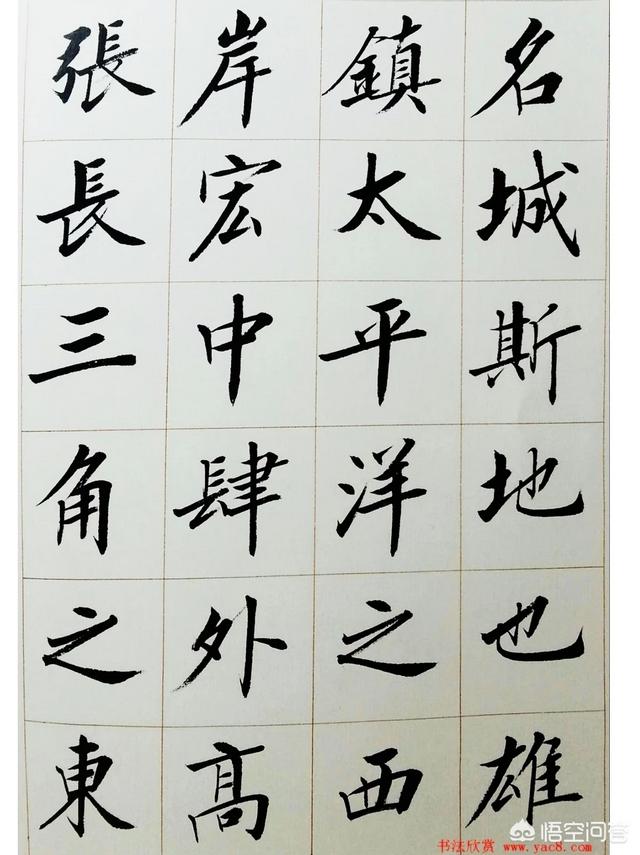 名城斯地也雄
鎮太平洋之西
岸宏中肆外高
張長三角之東
悟空问答
书法欣赏 www.yac8.com